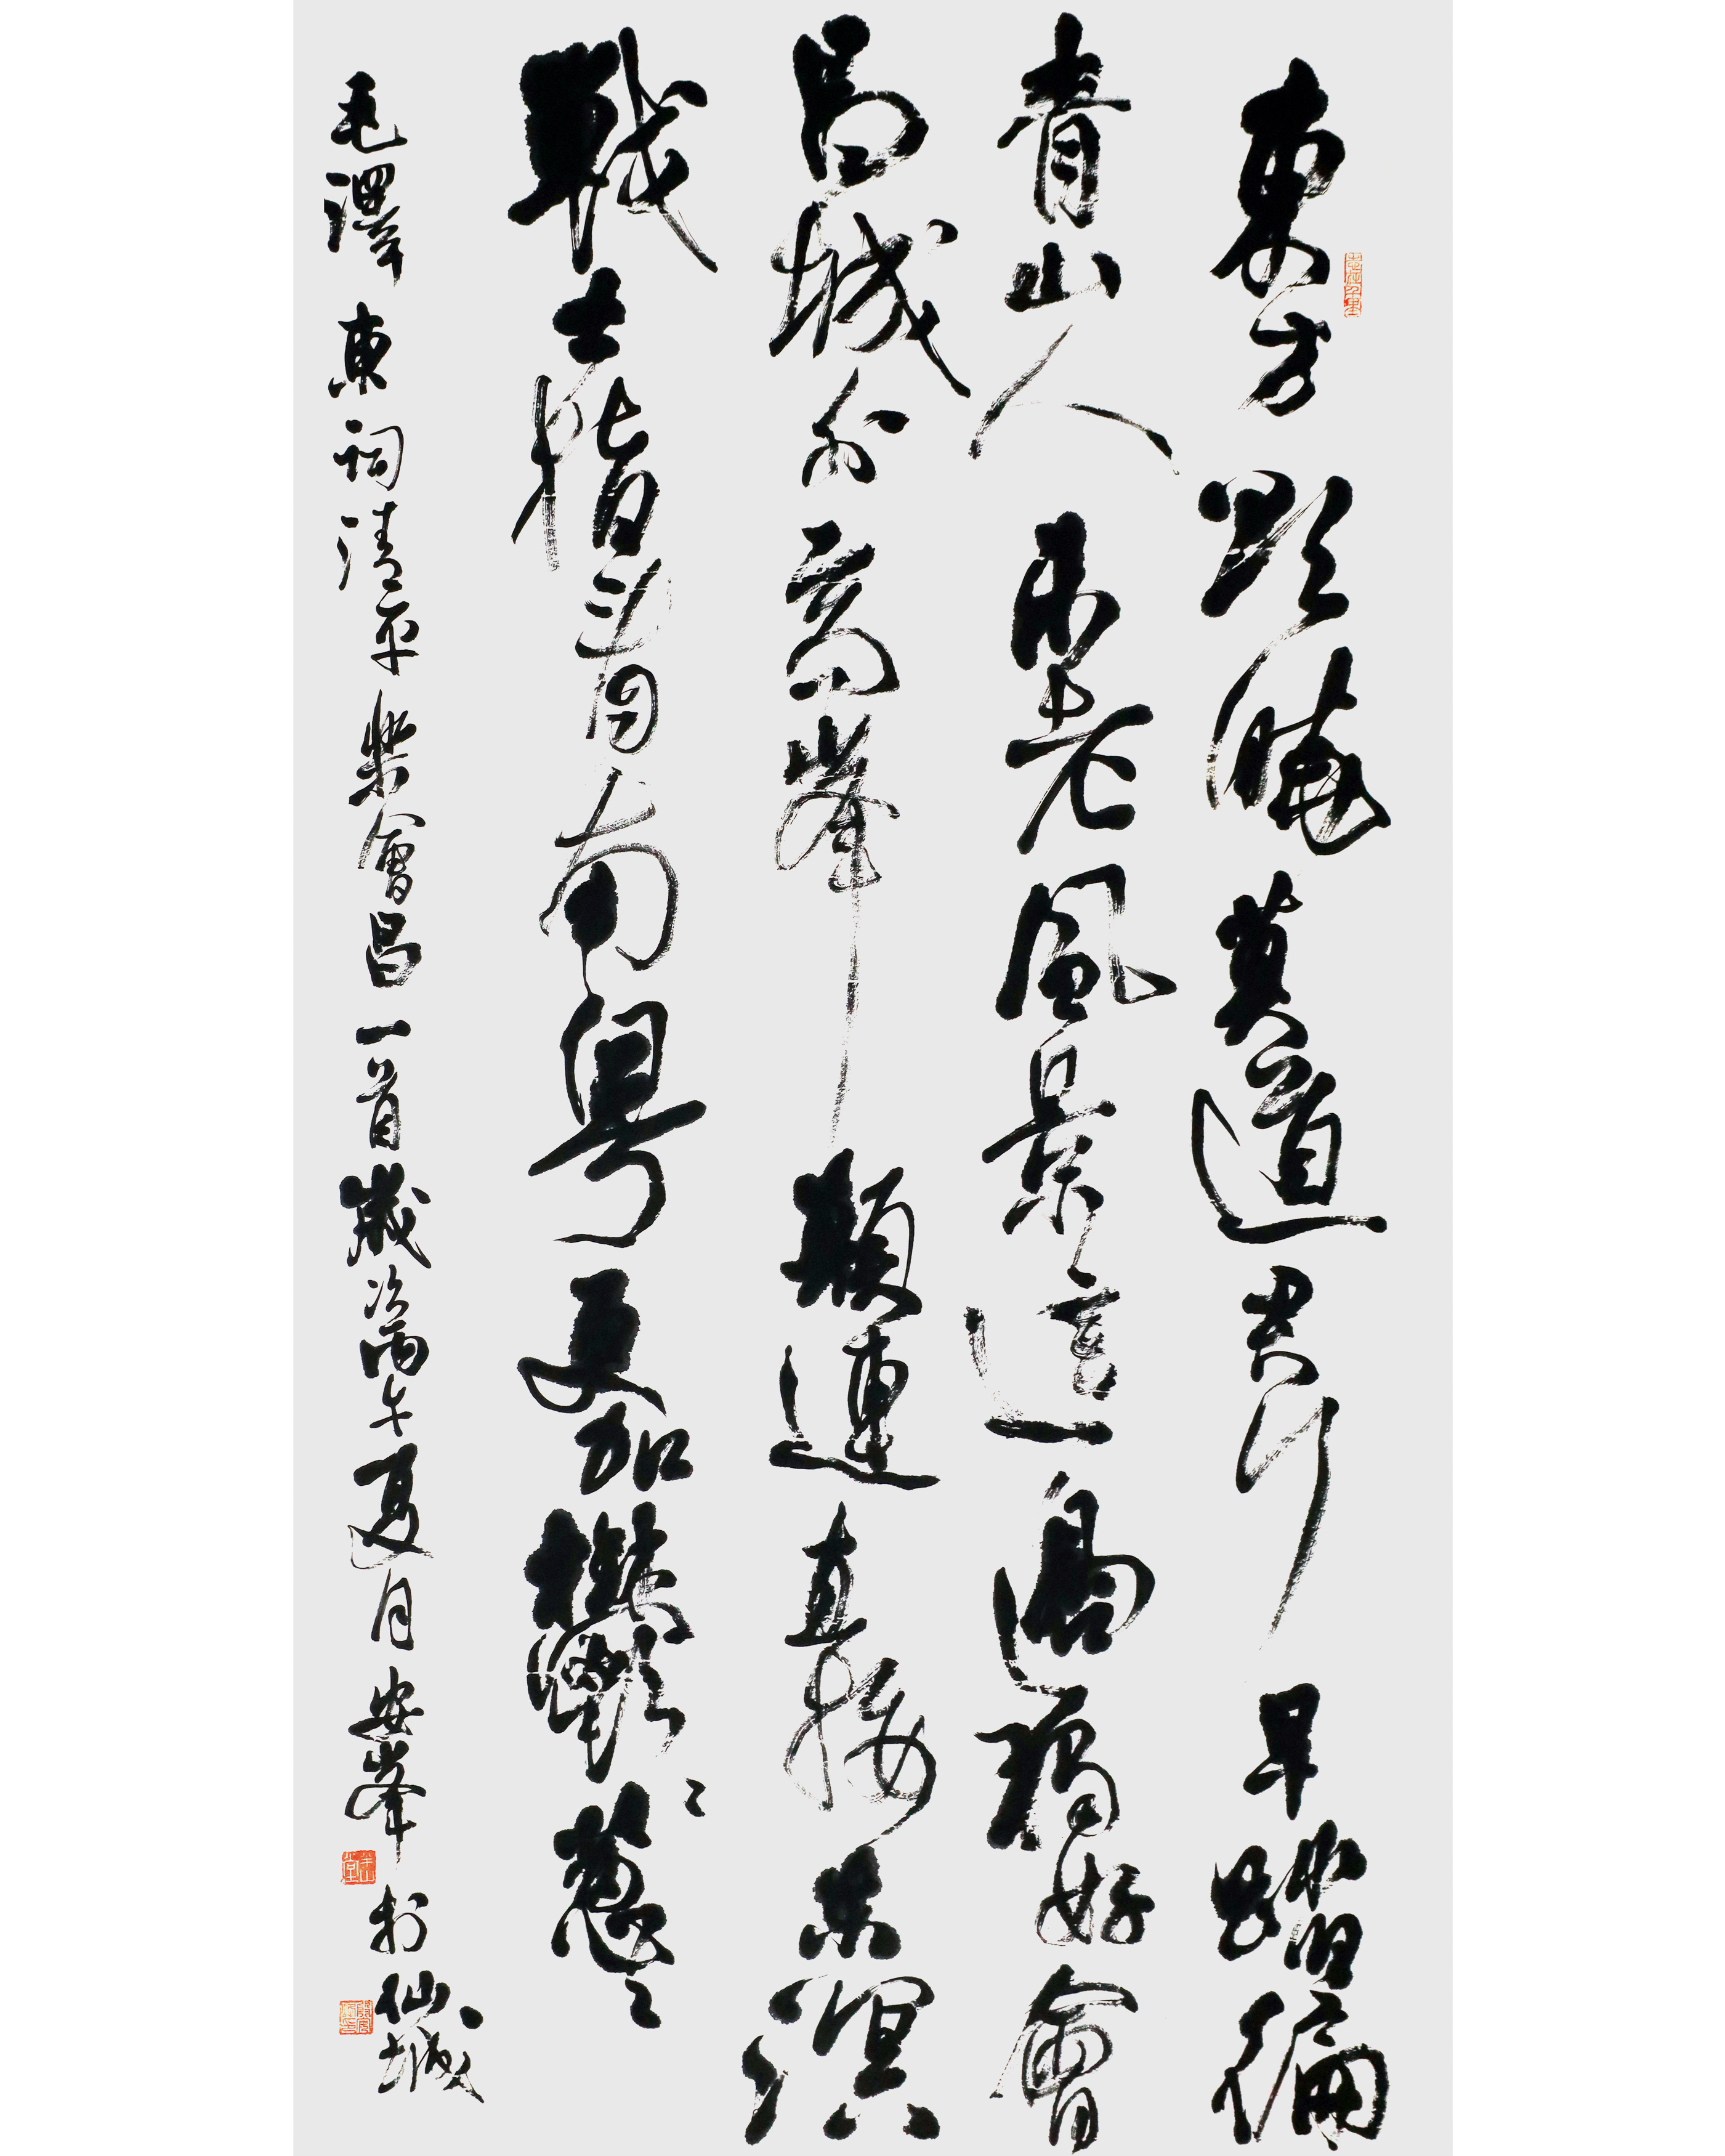 東方欲曉莫道君行早踏徧
青山人未老風景這邊獨好會
昌城外高峯顛連直接東溟
戰士指看南粤更加鬱〻葱〻
毛澤東詞清平樂會昌一首歲次丙午夏月安峯於仙城